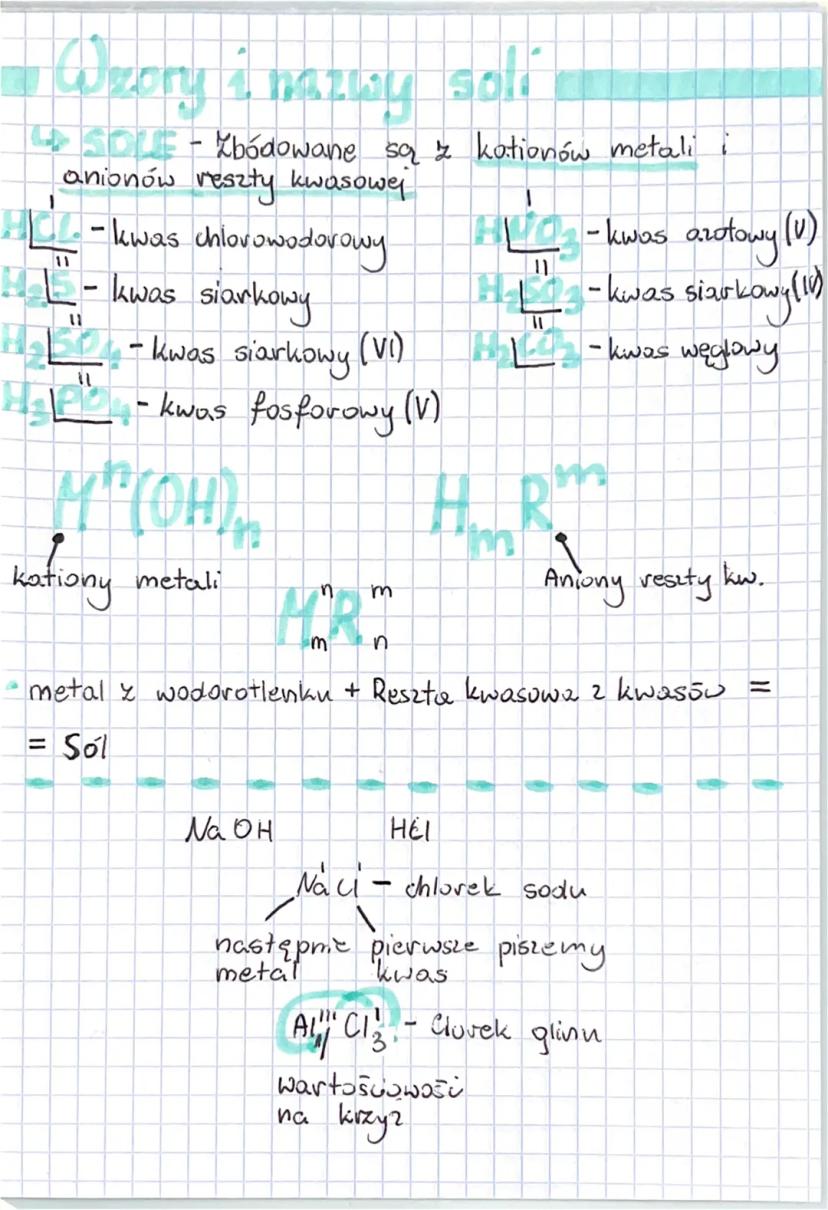 Wzory i nazwy soli
↳ SOLE - Zbódowane są z kationów metali i
anionów reszty kwasowej
HCl - kwas chlorowodorowy
I
HNO₃ - kwas azotowy (V)
I
H₂S - kwas siarkowy
II
H₂SO₃ - kwas siarkowy (IV)
II
H₂SO₄ - kwas siarkowy (VI)
II
H₂CO₃ - kwas węglowy
II
H₃PO₄ - kwas fosforowy (V)
II
Mⁿ(OH)ₙ
HₘRᵐ
kationy metali
Aniony reszty kw.
n m
MR
m n
• metal z wodorotlenku + Reszta kwasowa z kwasów =
= Sól
NaOH HCl
I I
NaCl - chlorek sodu
następnie pierwsze piszemy
metal kwas
III I
AlCl₃ - Clorek glinu
1
wartościowości
na krzyż